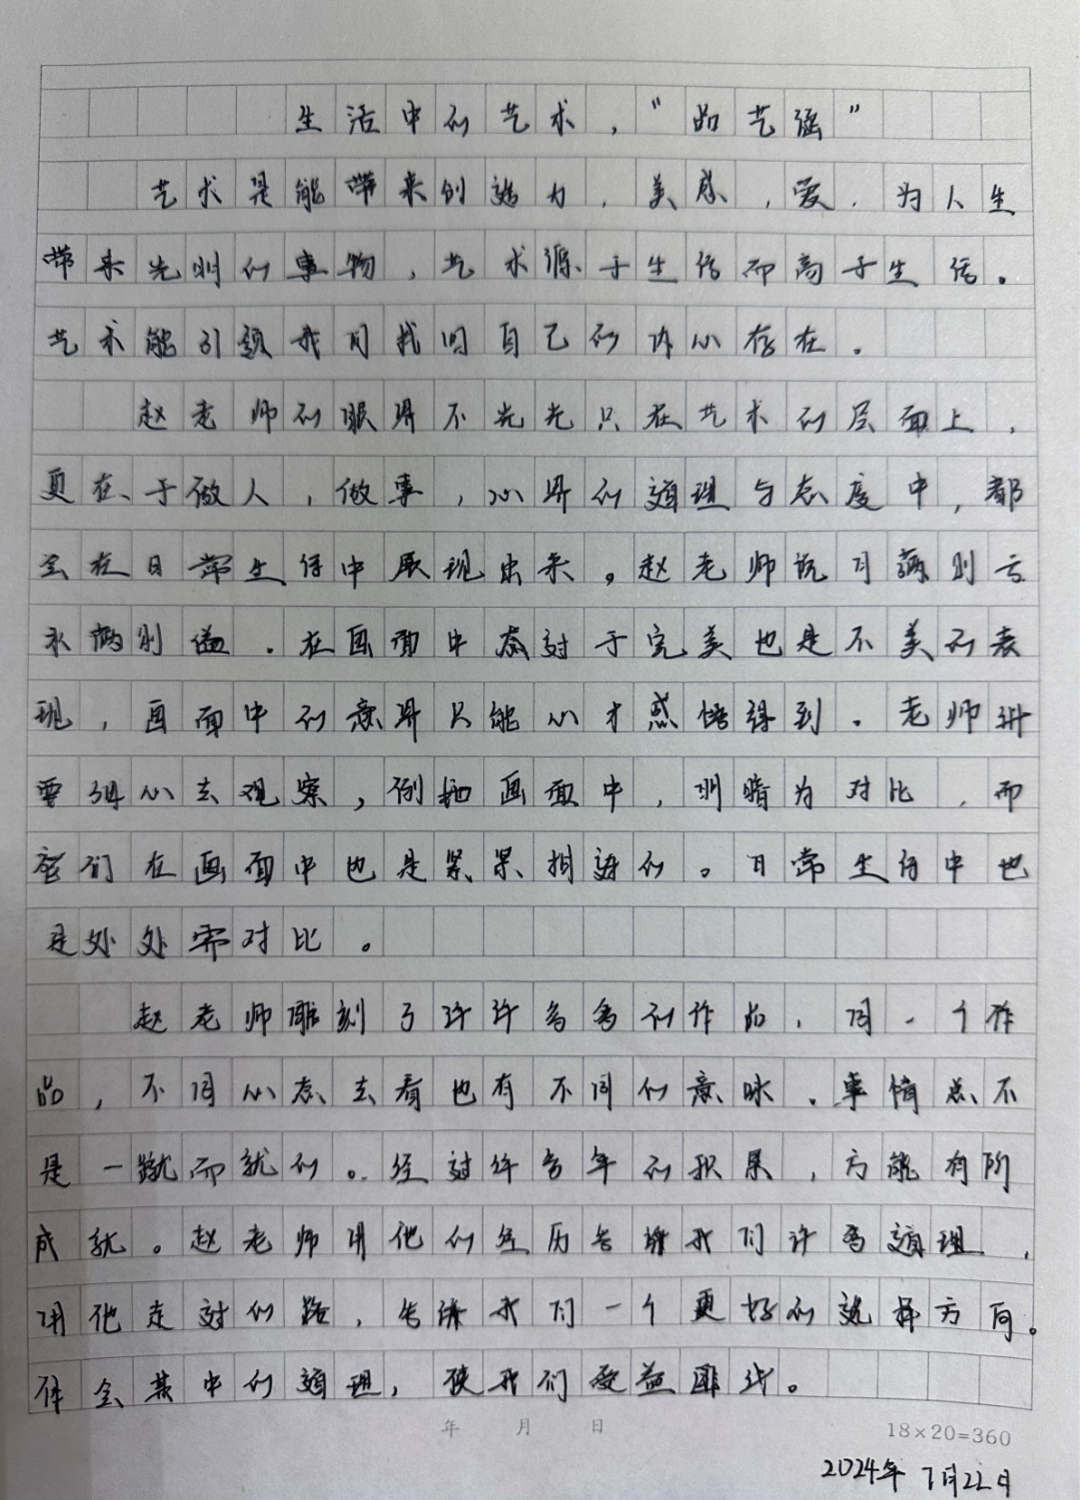 生活中的艺术，“品艺强”
艺术是能带来创造力，美感，爱，为人生
带来光明的事物，艺术源于生活而高于生活。
艺术能引领我们找回自己的内心存在。
赵老师的眼界不光光只在艺术的层面上，
更在于做人，做事，心界的道理与态度中，都
会在日常生活中展现出来。赵老师说月满则亏
水满则溢。在画面中太过于完美也是不美的表
现，画面中的意界只能心才感悟得到。老师讲
要细心去观察，例如画面中，明暗为对比，而
它们在画面中也是紧紧相连的。日常生活中也
是处处需对比。
赵老师雕刻了许许多多的作品，同一个作
品，不同心态去看也有不同的意味。事情总不
是一蹴而就的。经过许多年的积累，方能有所
成就。赵老师用他的经历告诉我们许多道理，
用他走过的路，告诉我们一个更好的选择方向。
体会其中的道理，使我们受益匪浅。
年 月 日
18×20=360
2024年7月22日